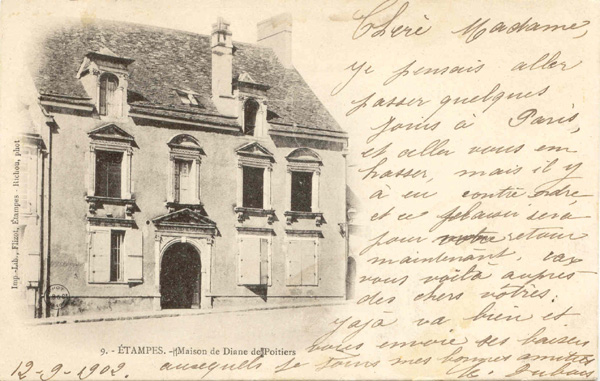 Chère Madame,
je pensais aller
passer quelques
jours à Paris,
et aller vous em
brasser, mais il y
à eu contre ordre
et ce plaisir sera
pour votre retour
maintenant,
vous voilà auprès
des chers vôtres.
Yaja va bien et
vous envoie ses baisers
auxquels je joins mes bonnes amitiés
Imp.-Lib., Flizot, Étampes - Richou, phot
9. - ÉTAMPES. - Maison de Diane de Poitiers
12-9-1902.